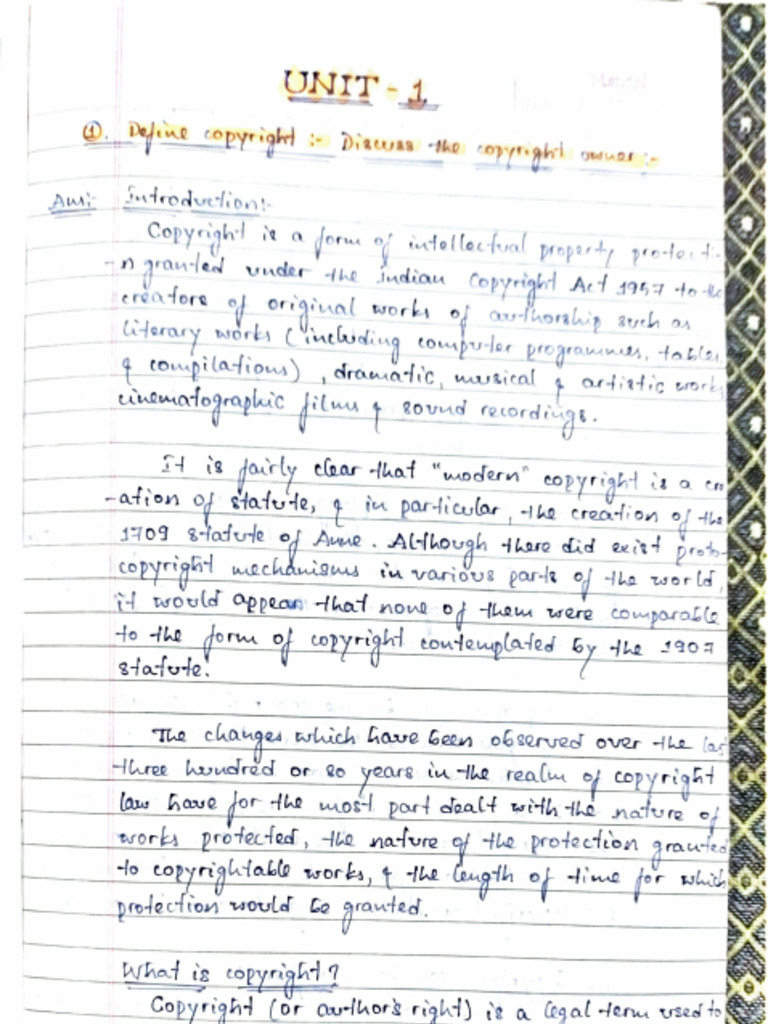 UNIT - 1
①. Define copyright :- Discuss the copyright owner:-
Ans:- Introduction:-
Copyright is a form of intellectual property protecti-
-n granted under the Indian Copyright Act 1957 to the
creators of original works of authorship such as
literary works (including computer programmes, tables
& compilations), dramatic, musical & artistic works
cinematographic films & sound recordings.
It is fairly clear that "modern" copyright is a cre
-ation of statute, & in particular, the creation of the
1709 statute of Anne. Although there did exist proto
copyright mechanisms in various parts of the world,
it would appear that none of them were comparable
to the form of copyright contemplated by the 1907
statute.
The changes which have been observed over the las
three hundred or so years in the realm of copyright
law have for the most part dealt with the nature of
works protected, the nature of the protection granted
to copyrightable works, & the length of time for which
protection would be granted.
What is copyright?
Copyright (or author's right) is a legal term used to